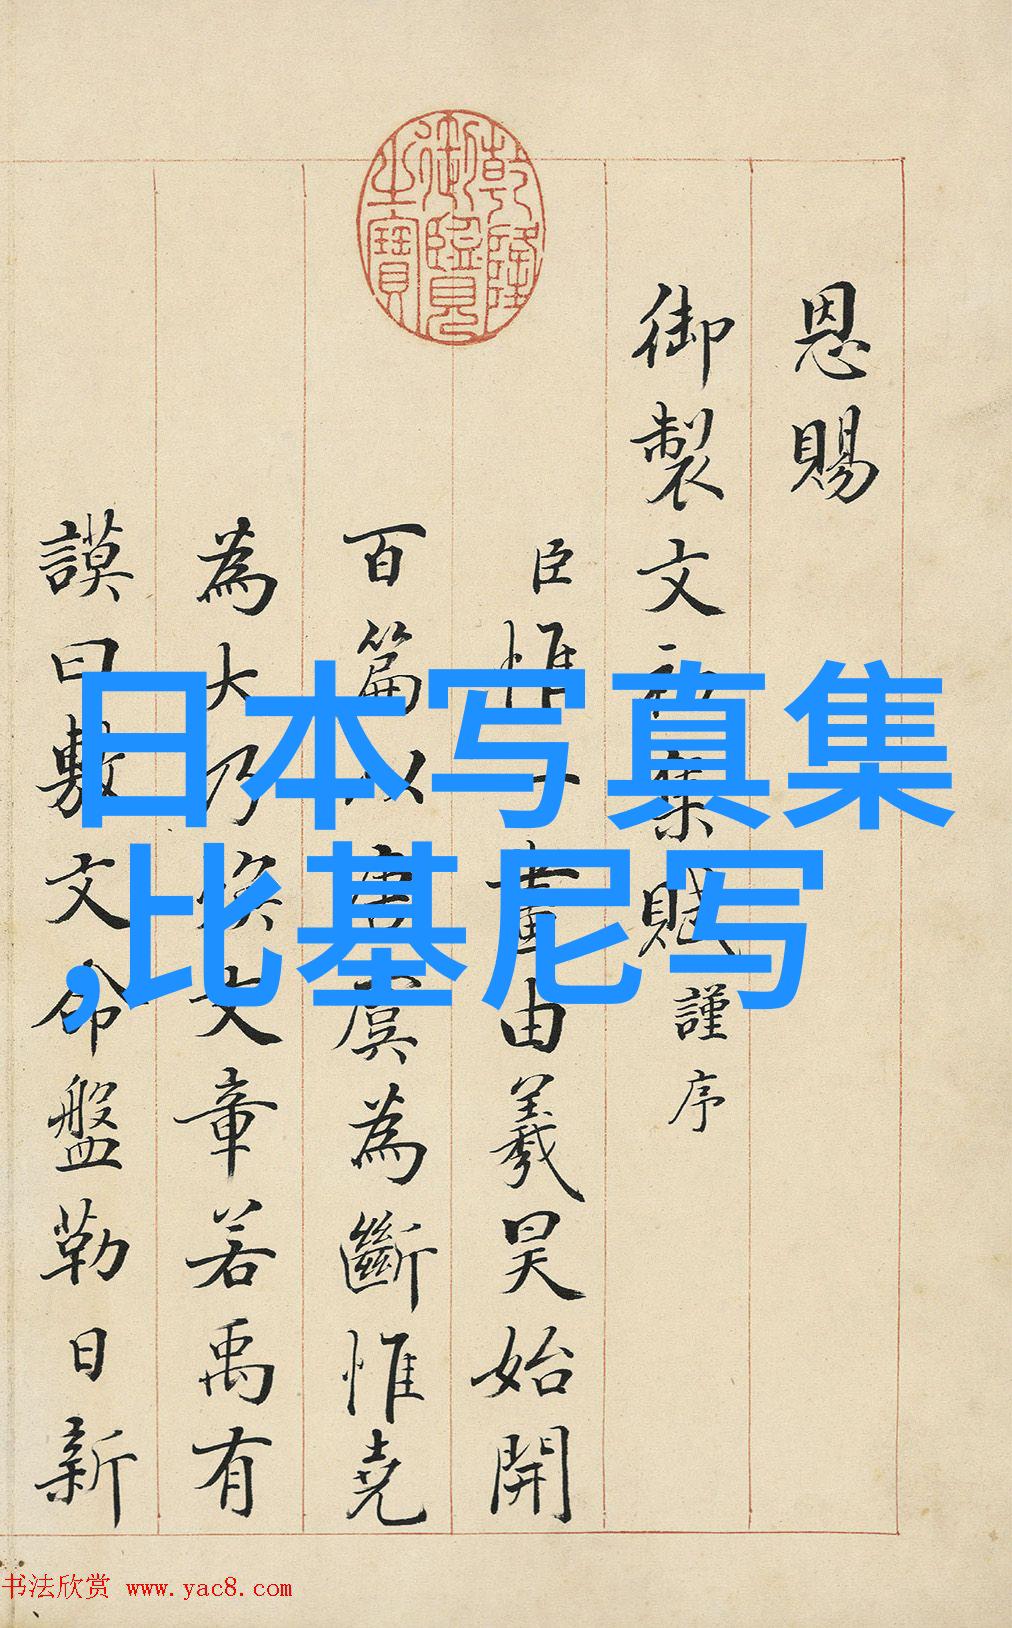 乾隆
御覽
之寶
恩賜
御製文初集賦謹序
臣惟一畫由羲昊始開
百篇以唐虞為斷惟堯
為大乃煥文章若禹有
謨曰敷文命盤勒日新
日本写真集
,比基尼写
书法欣赏 www.yac8.com